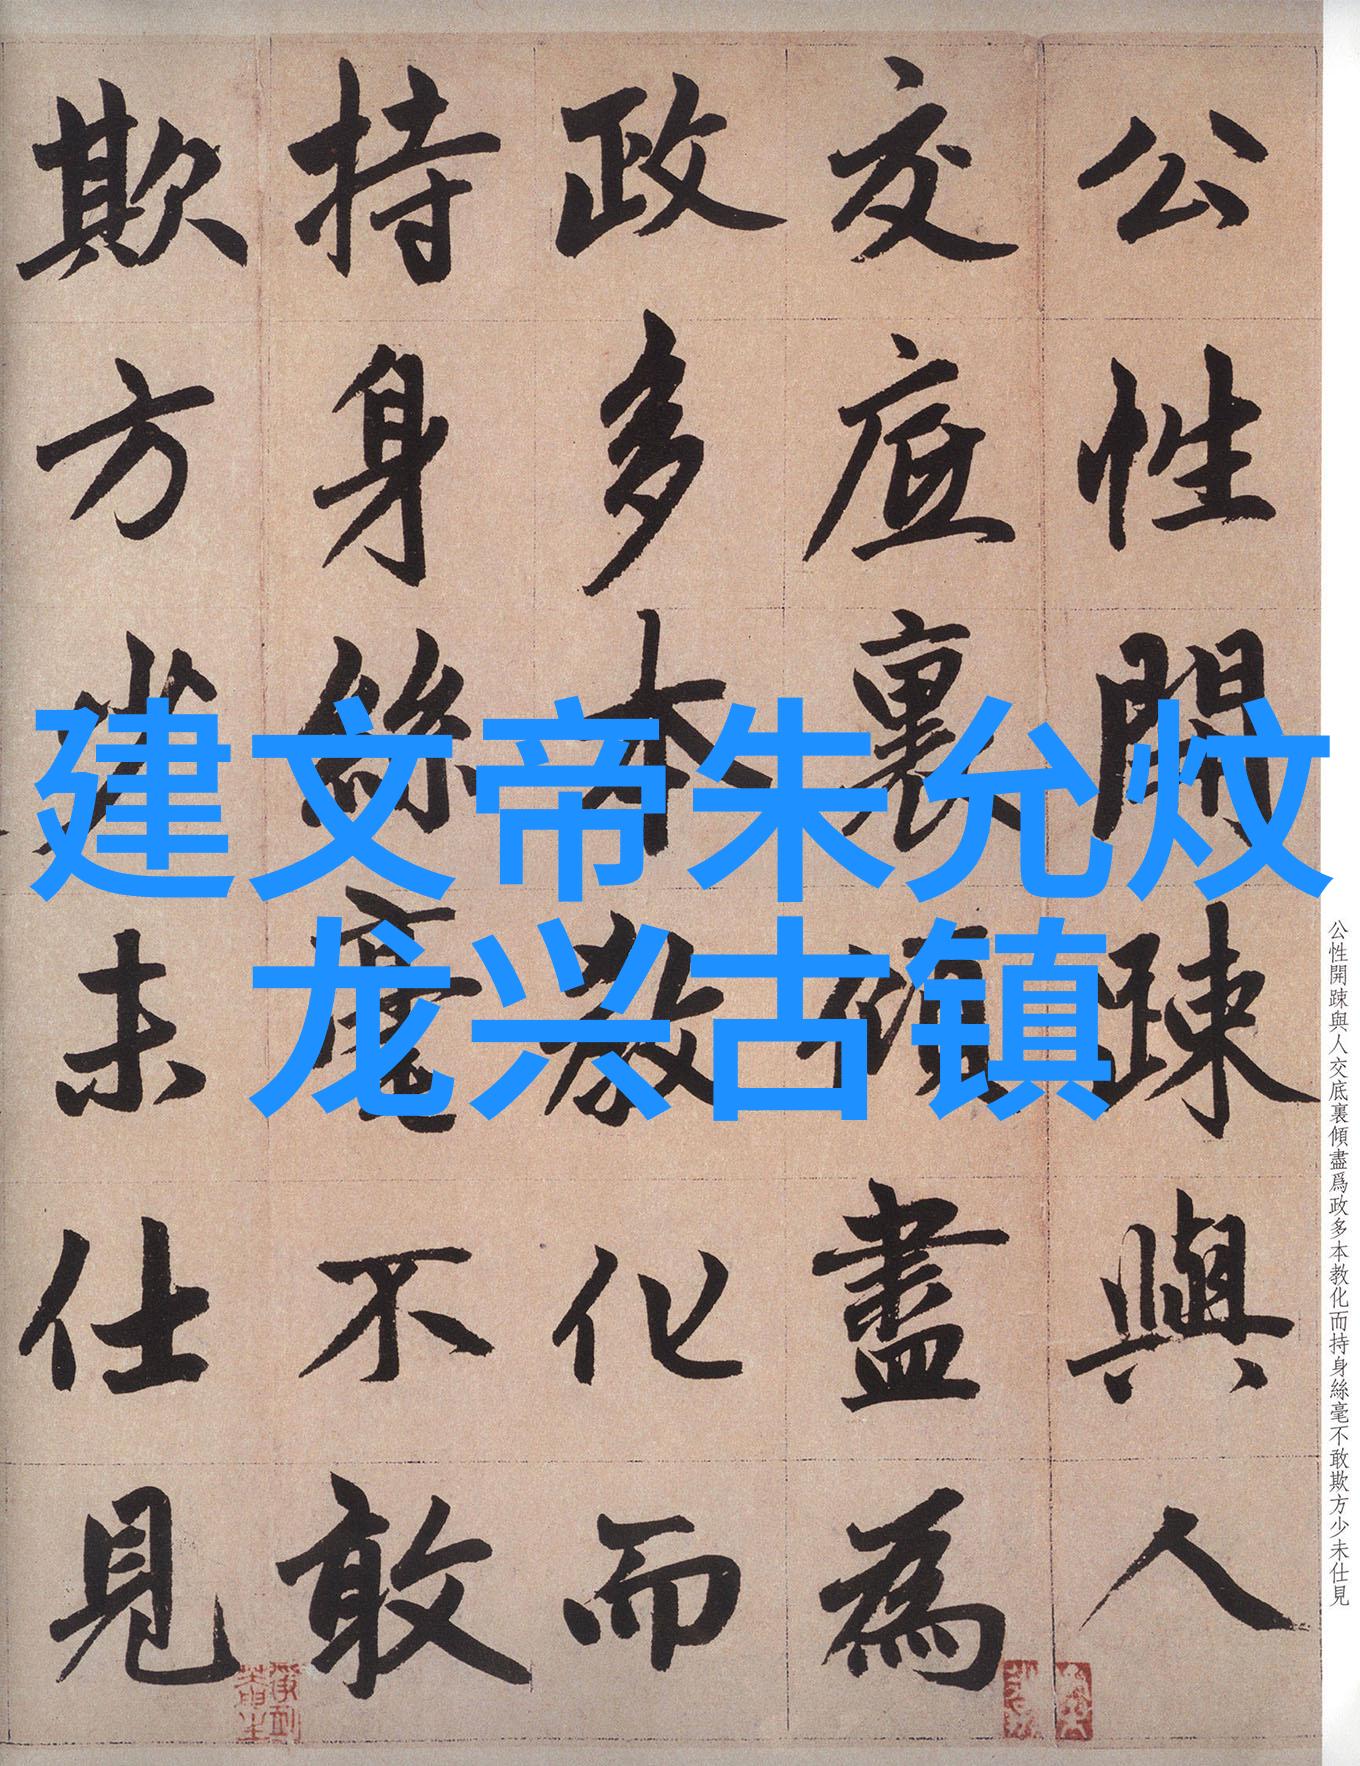 公性開踈與人
交底裏傾盡為
政多本教化而
持身絲毫不敢
欺方少未仕見
建文帝朱允炆
龙兴古镇
公性開踈與人交底裏傾盡爲政多本教化而持身絲毫不敢欺方少未仕見